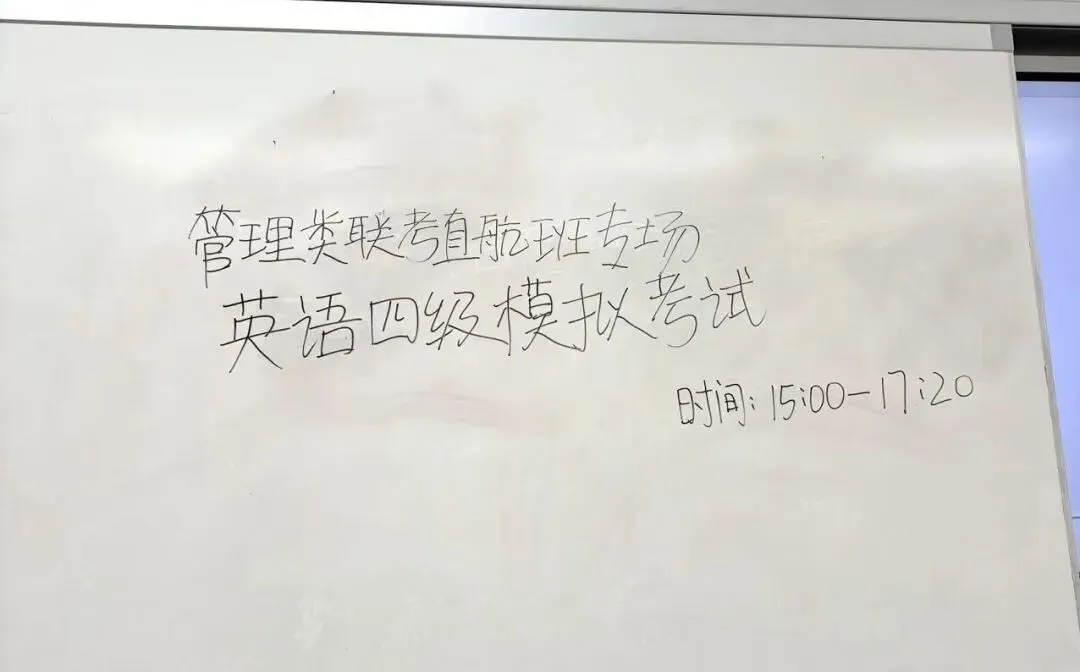 管理类联考直航班专场
英语四级模拟考试
时间:15:00-17:20